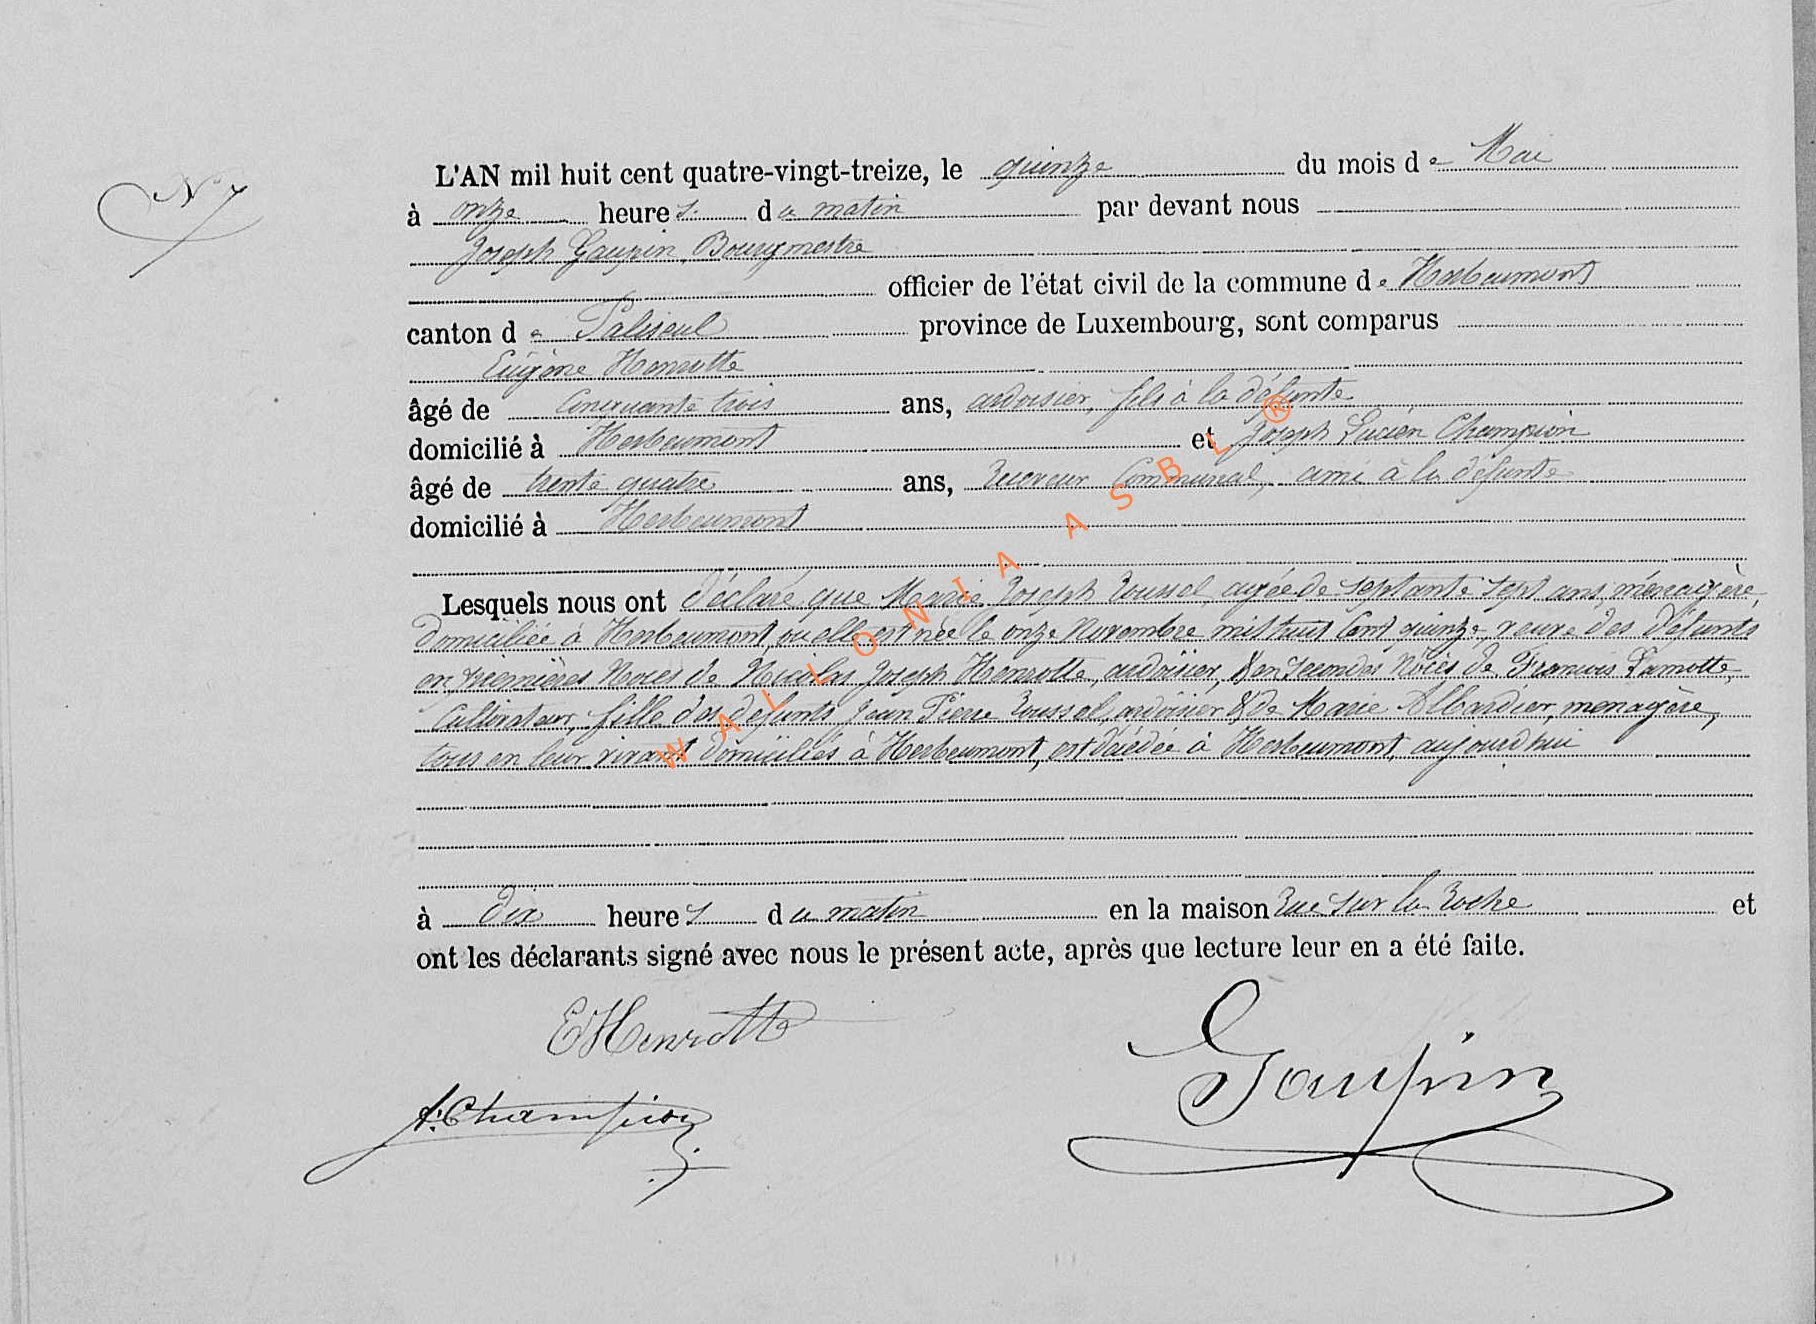 N° 7
L'AN mil huit cent quatre-vingt-treize, le quinze du mois de Mai
à onze heures du matin par devant nous
Joseph Gaupin, Bourgmestre
officier de l'état civil de la commune de Herbeumont
canton de Paliseul province de Luxembourg, sont comparus
Eugène Henrotte
âgé de cinquante trois ans, ardoisier, fils à la défunte
domicilié à Herbeumont et Joseph Lucien Champion
âgé de trente quatre ans, Receveur Communal, ami à la défunte
domicilié à Herbeumont
Lesquels nous ont déclaré que Marie Joseph Roussel, agée de septante sept ans, ménagère,
domiciliée à Herbeumont, ou elle est née le onze Novembre mil huit cent quinze, veuve des défunts
en premières Noces de Nicolas Joseph Henrotte, ardoisier, & en secondes Noces de François Lamotte,
Cultivateur, fille des défunts Jean Pierre Roussel, ardoisier & de Marie Albardier, menagère,
tous en leur vivant domiciliés à Herbeumont, est décédée à Herbeumont, aujourd'hui
à dix heures du matin en la maison Rue sur la Roche et
ont les déclarants signé avec nous le présent acte, après que lecture leur en a été faite.
EHenrotte
Gaupin
A. Champion
WALLONIA ASBL ®